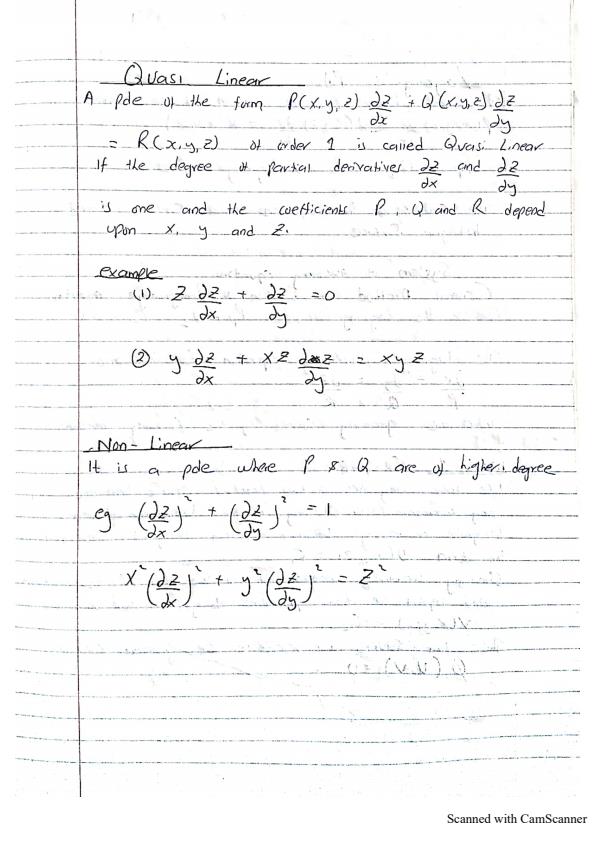 Quasi Linear
A pde of the form P(x,y,z) ∂z/∂x + Q(x,y,z) ∂z/∂y
= R(x,y,z) of order 1 is called Quasi Linear
If the degree of partial derivatives ∂z/∂x and ∂z/∂y
is one and the coefficients P, Q and R depend
upon x, y and z.
example
(1) z ∂z/∂x + ∂z/∂y = 0
(2) y ∂z/∂x + xz ∂z/∂y = xyz
Non-Linear
It is a pde where P & Q are of higher degree
eg (∂z/∂x)² + (∂z/∂y)² = 1
x²(∂z/∂x)² + y²(∂z/∂y)² = z²
Scanned with CamScanner